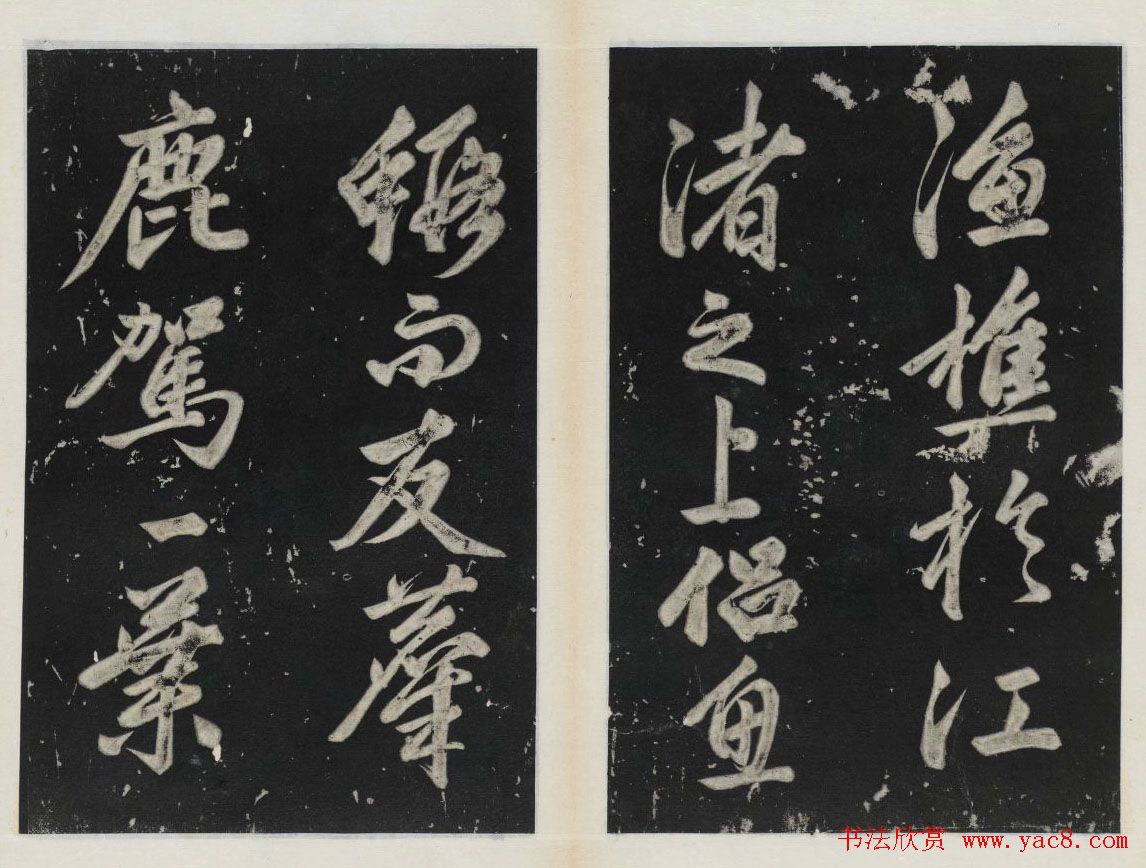 漁樵於江
渚之上侣魚
鰕而友麋
鹿駕一葉
书法欣赏 www.yac8.com